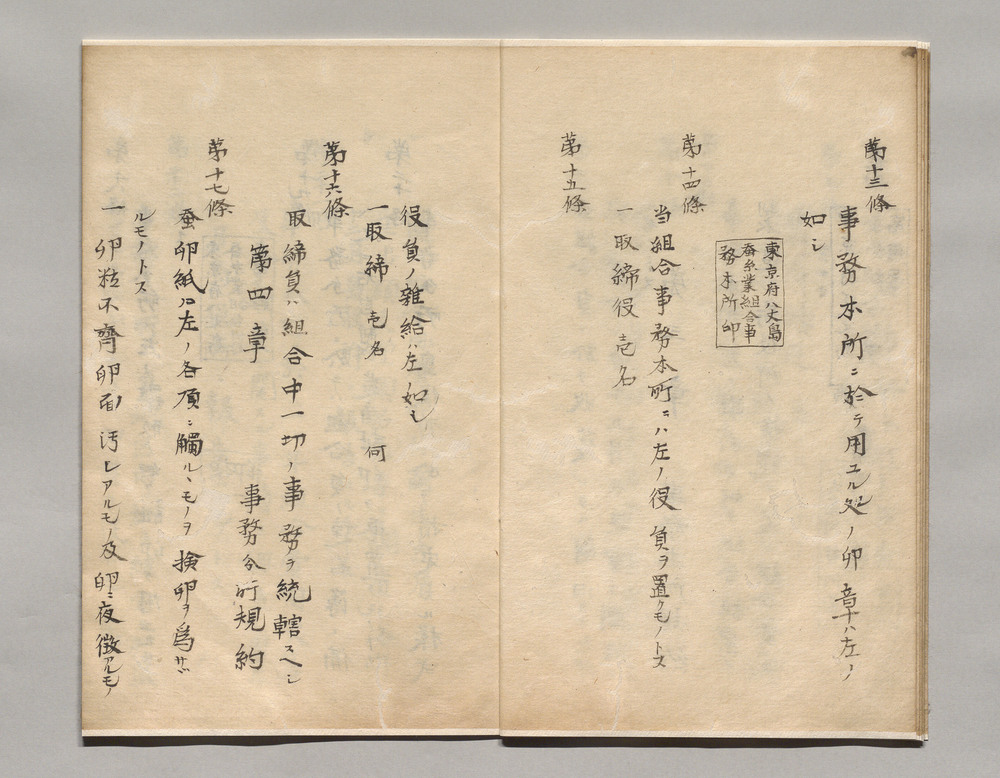 第十三條
事務本所ニ於テ用エル処ノ卵章ハ左ノ
如シ
東京府八丈島
蚕糸業組合事
務本所印
第十四條
当組合事務本所ニハ左ノ役員ヲ置クモノトス
一取締役壱名
第十五條
役員ノ雑給ハ左ノ如シ
一取締 壱名 何
第十六條
取締員ハ組合中一切ノ事務ヲ統轄スヘシ
第四章 事務分行規約
第十七條
蚕卵紙ハ左ノ各項ニ觸ルヽモノヲ検卵ヲ為サヾ
ルモノトス
一卵粒不齊卵面汚レアルモノ及卵ニ夜徴アルモノ